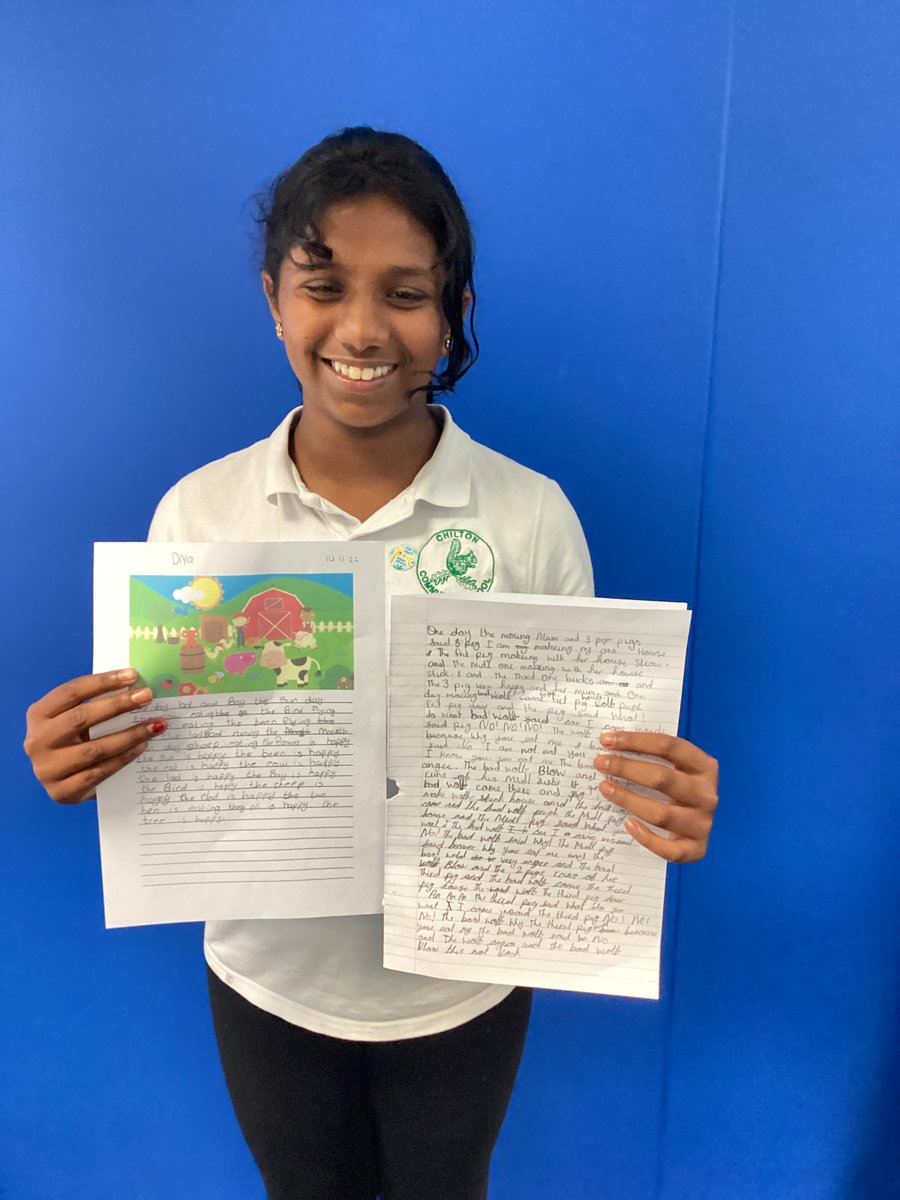 Diya 14.11.22
day lad and Boy the Sun day
the cow eaight the Bird flying
eating the been flying
the lad and runing the Mooth
day sheep wating the flowers is happy
the sun is happy the been is happy
the cat is happy the cow is happy
the lad is happy the Boy is happy
the Bird is happy the sheep is
happy the dad is happy the sun
hen is eating is happy the
tree is happy.
CHILTON
COMM
OL
One day the moring Mum and 3 pigs
said 3 pig I am makeing my own House
the fist pig makeing with her house Straw.
and The Midll one makeing with her house
stick. and The Third one bricks and
The 3 pig very happy and her mum and One
day moring bad wolf came fist pig house push
fist pig door and the pig said What!
do want bad wolf said can I come insaid
said pig No! No! No! The wolf
because why you eat me
said no I am not eat you
I know you you eat me The bad
angree. The bad wolf Blow and the
runs of his Midll sister
bad wolf come there and pig
make with stick house and the
came and the bad wolf push the Midll pig
house and the Midll pig said What you
want the bad wolf can I come insaid
No! The bad wolf said Why! The Midll pig
said becose Why you eat me and the
bad wolf very angree and The bad
wolf Blow and the 2 pigs runs of his
third pig and The bad wolf came the third
pig house the wolf The third pig door
the third pig said What do do
want I came insaid The third pig No! No!
No! The bad wolf Why the third pig because
you eat my the bad wolf said No
and The wolf angree and the bad wolf
Blow this not Blook